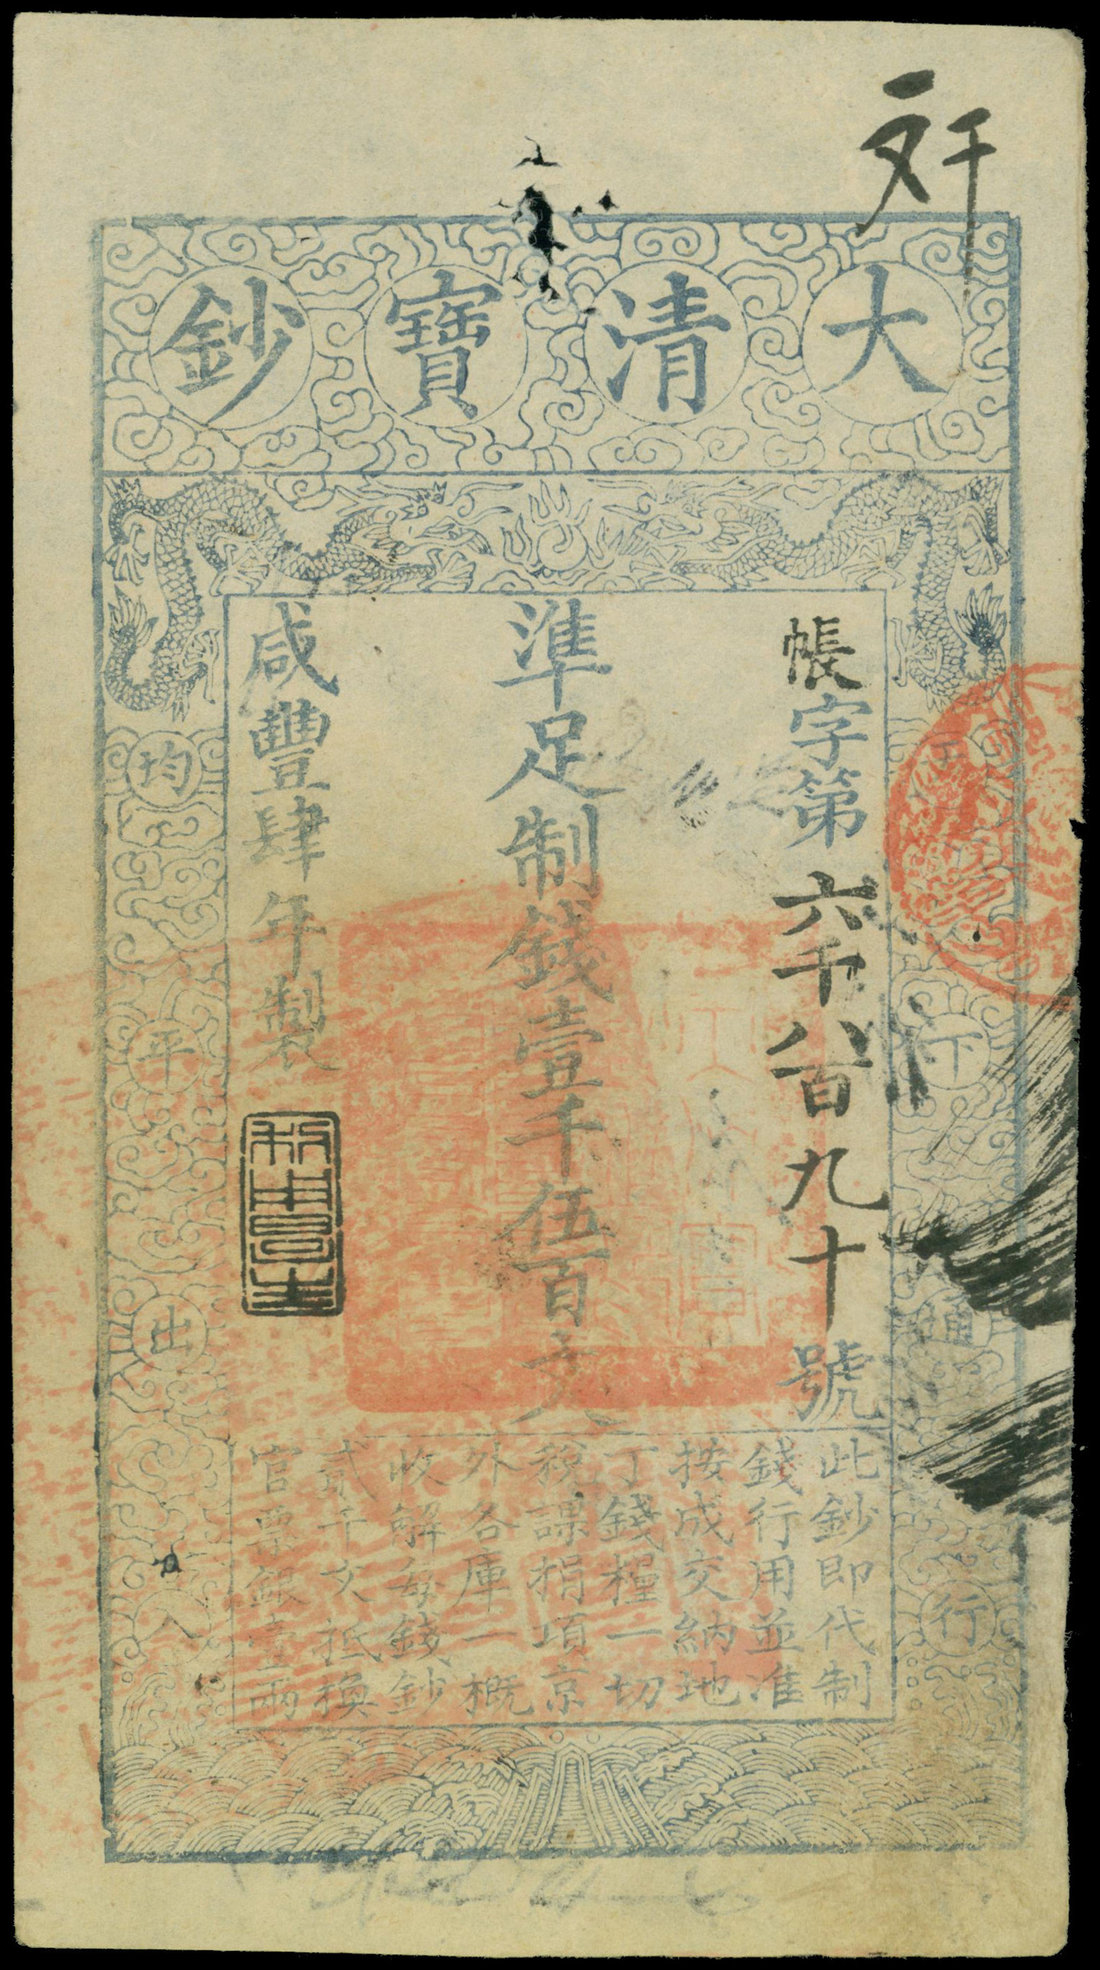 大清寶鈔
帳字第六千八百九十號
準足制錢壹千伍百文
咸豐肆年製
天下通行
均平出入
此鈔即代制
錢行用並准
按成交納地
丁錢糧一切
稅課捐項京
外各庫一概
收解每錢鈔
貳千文抵換
官票銀壹兩